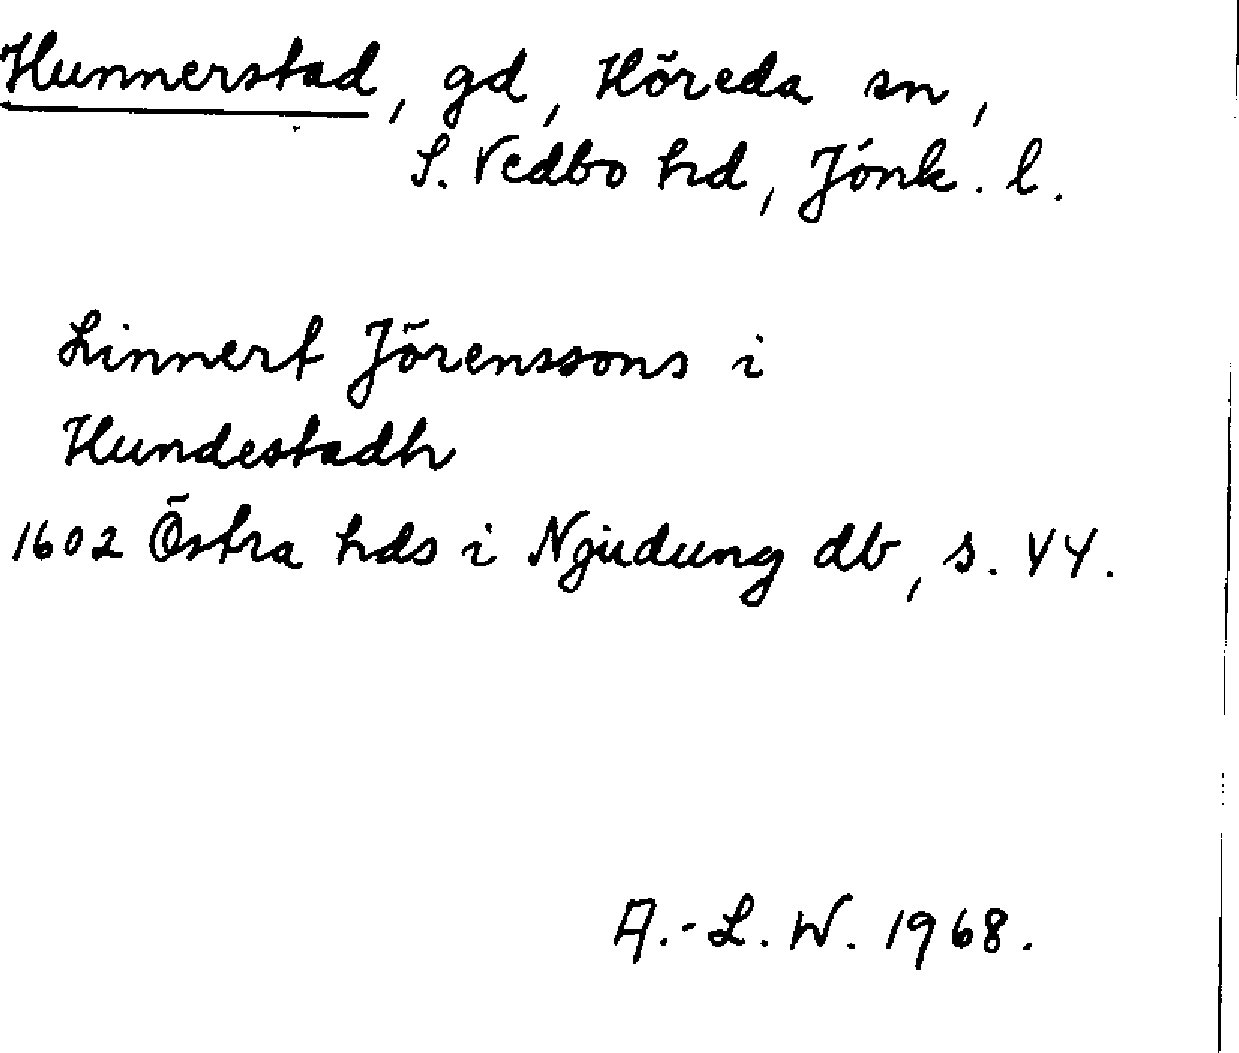 Hunnerstad, gd, Höreda sn,
S. Vedbo hd, Jönk. l.
Linnert Jörenssons i
Hundestadh
1602 Östra hds i Njudung db, s. 44.
A.-L. W. 1968.